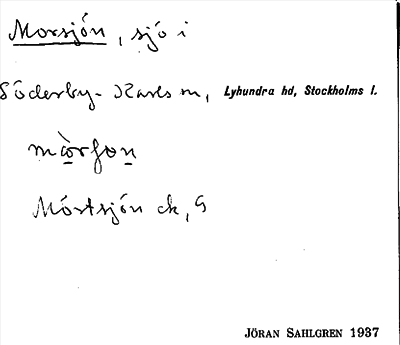 Morsjön, sjö i
Söderby-Karls sn, Lyhundra hd, Stockholms l.
mòrfon
Mörtsjön ek, G
JÖRAN SAHLGREN 1937